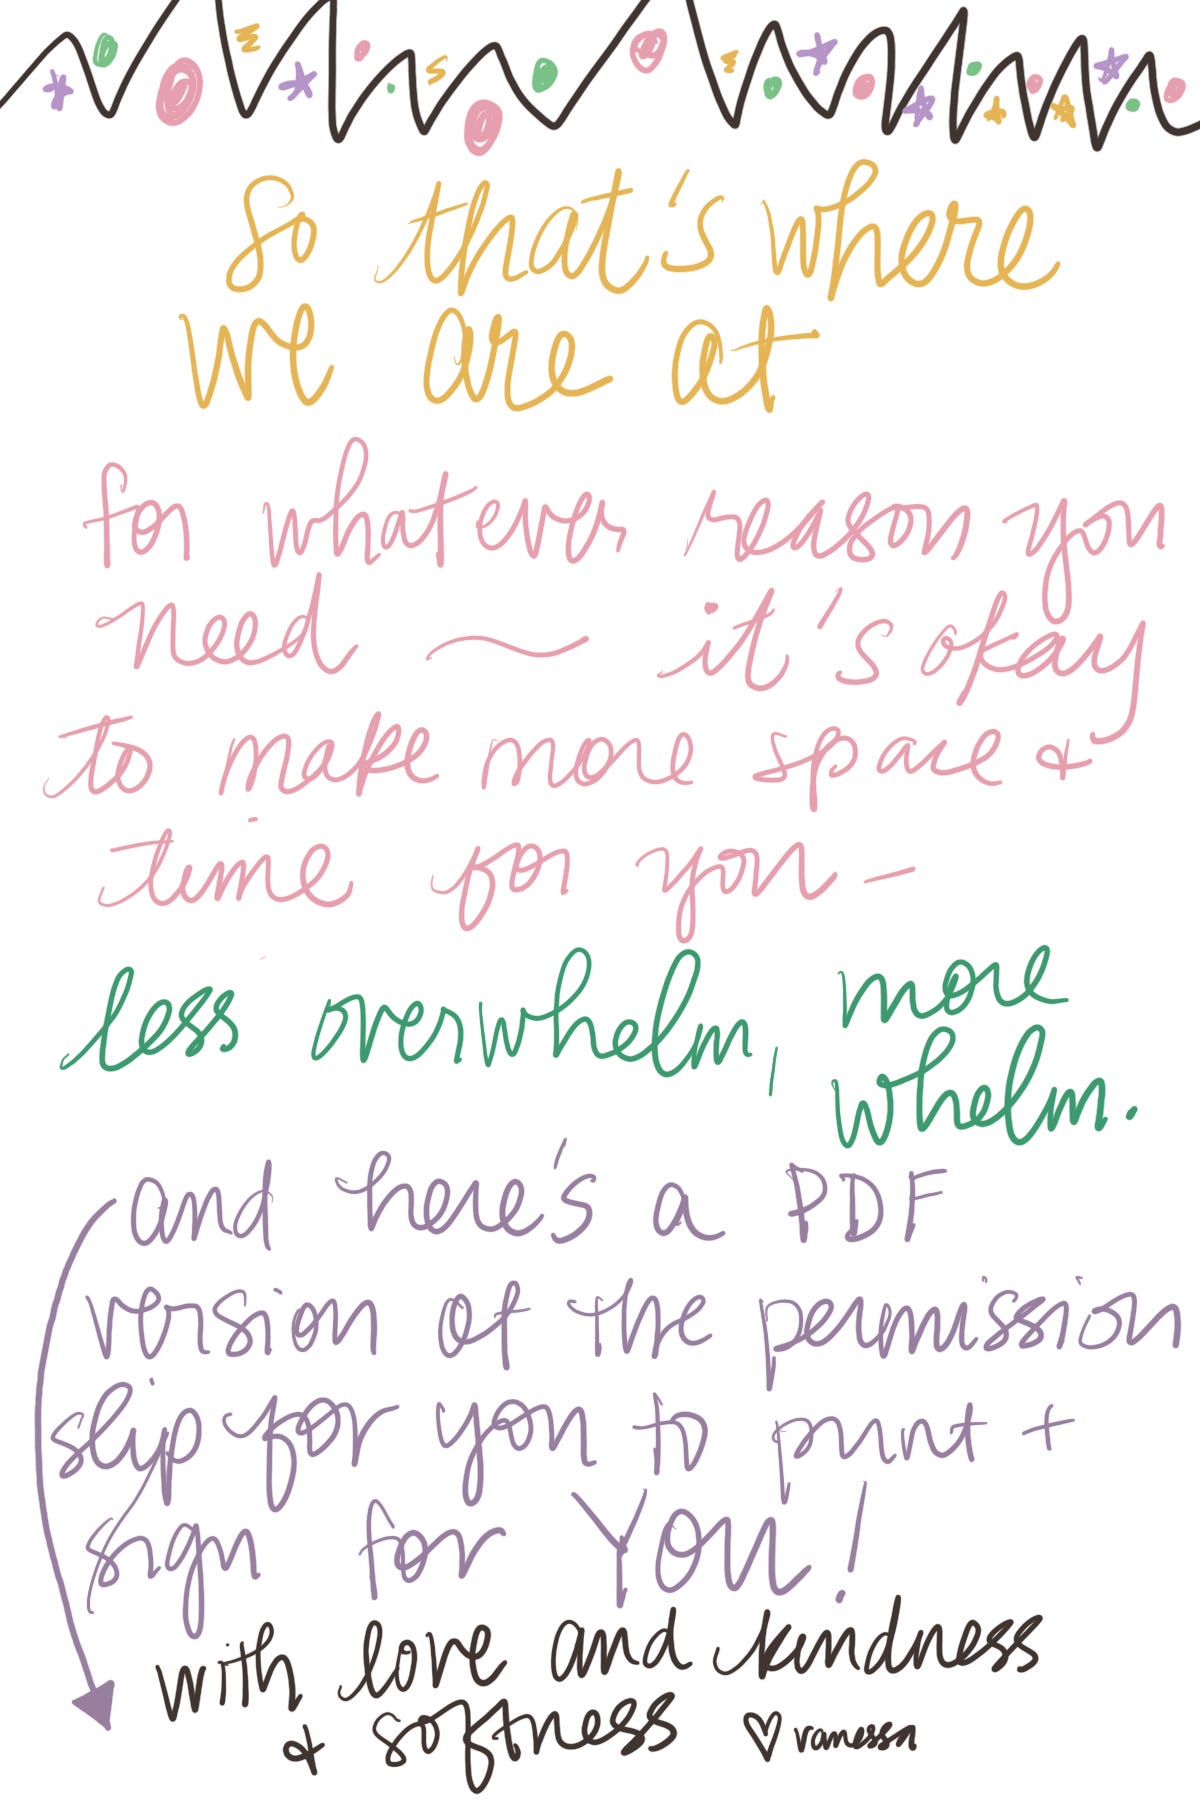 So that's where
we are at
for whatever reason you
need ~ it's okay
to make more space +
time for you –
less overwhelm, more
whelm.
and here's a PDF
version of the permission
slip for you to print +
sign for YOU!
with love and kindness
& softness ♡ vanessa